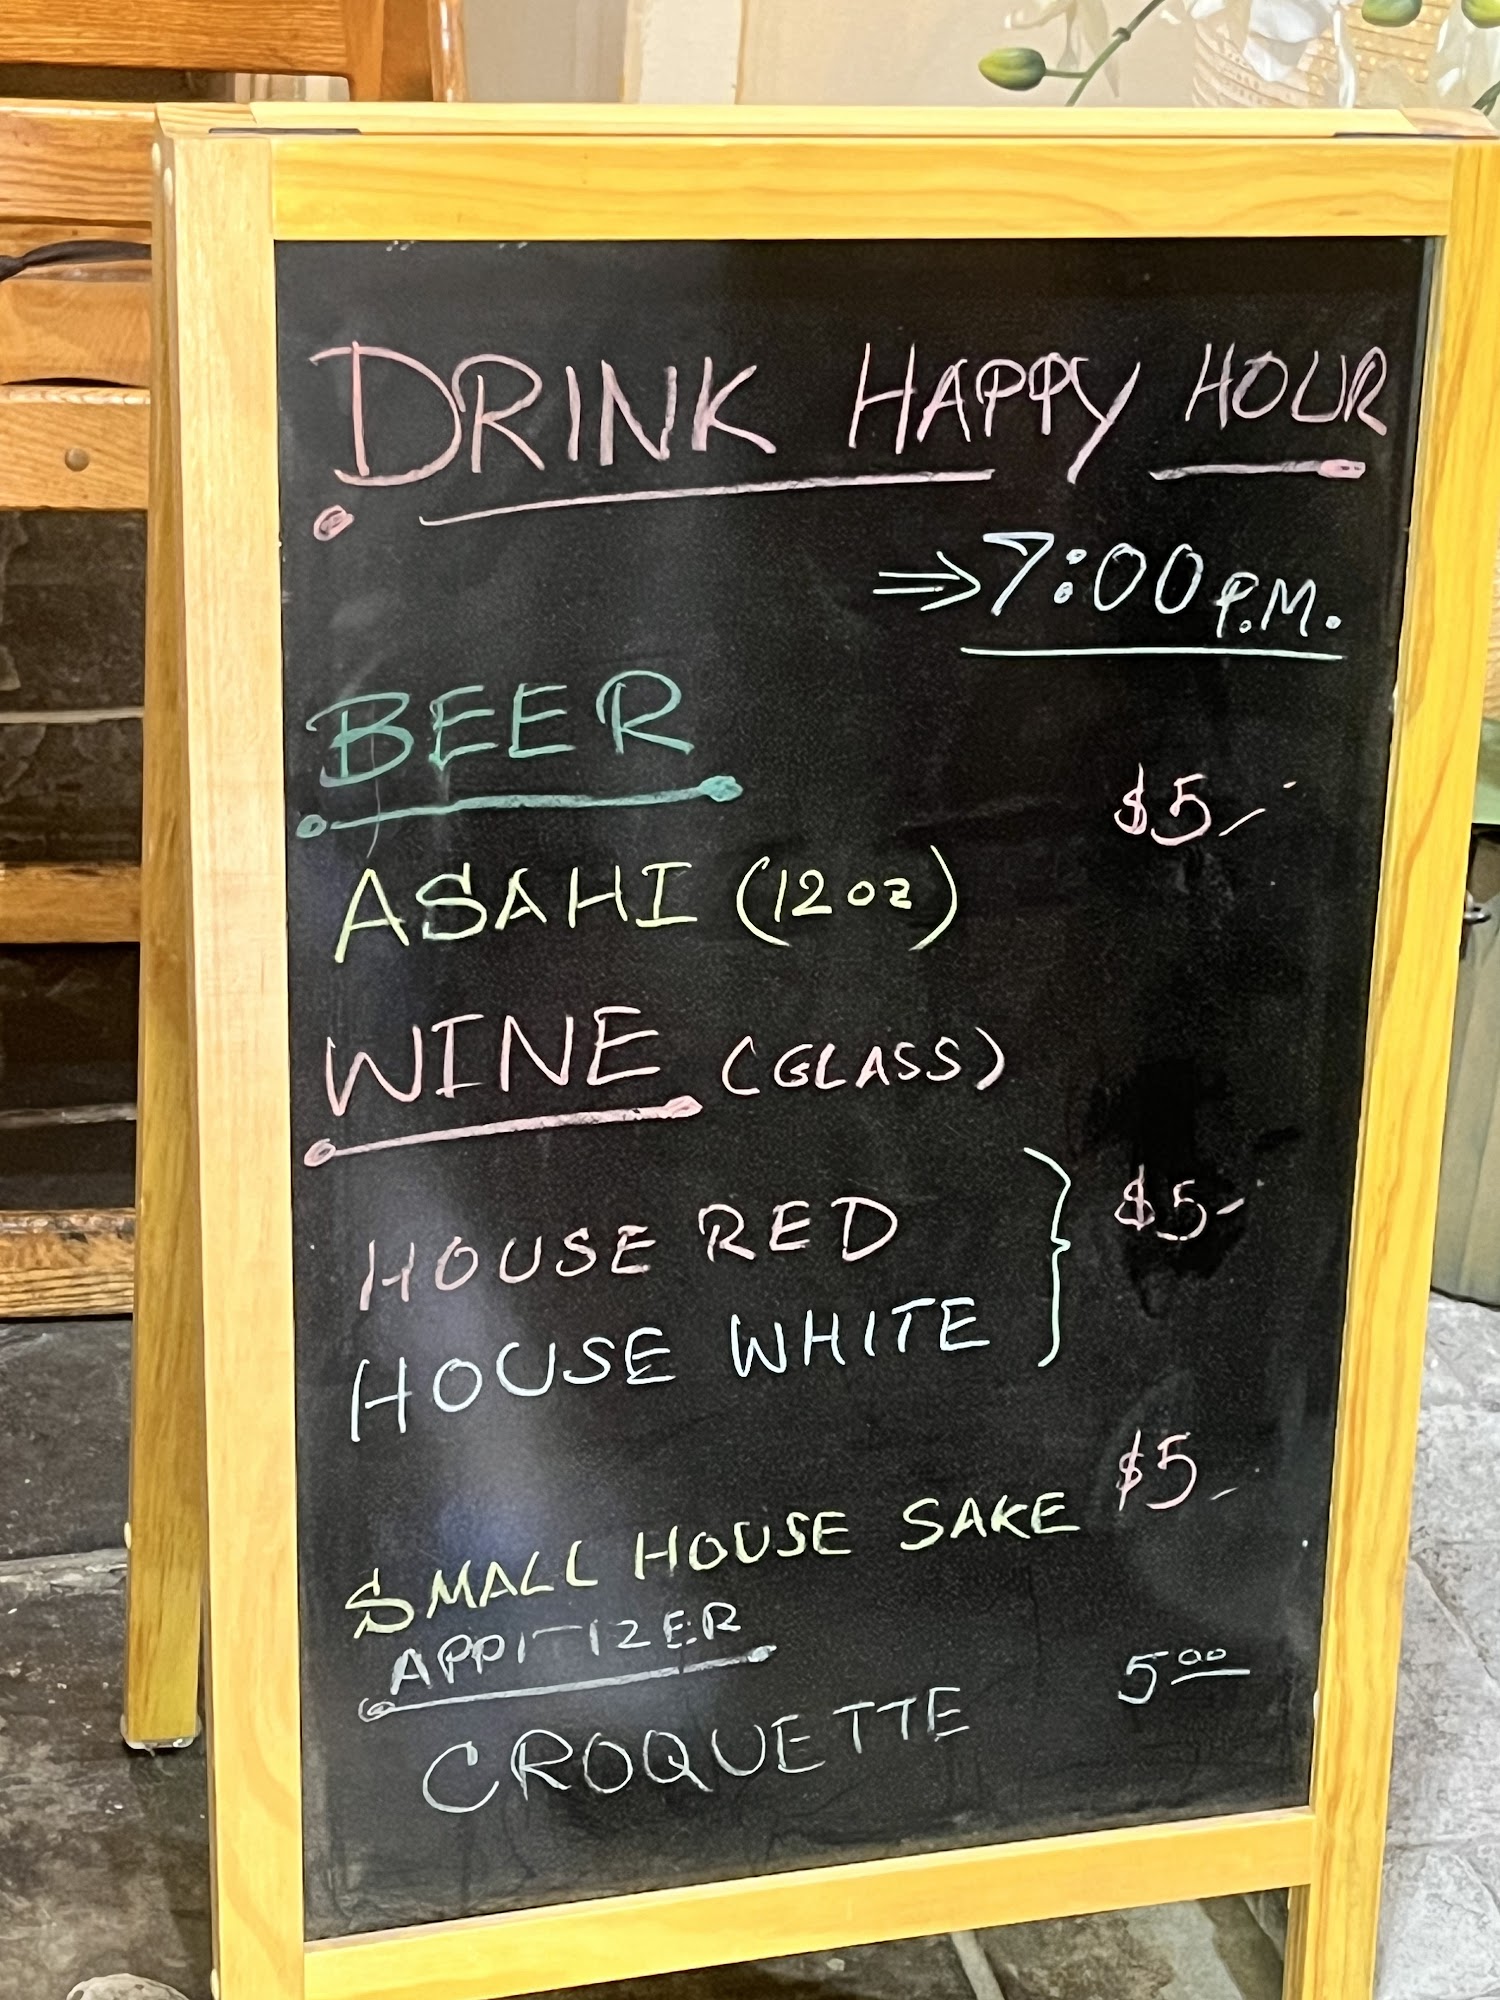 DRINK HAPPY HOUR
⇒7:00 P.M.
BEER
ASAHI (12oz) $5-
WINE (GLASS)
HOUSE RED
HOUSE WHITE } $5-
SMALL HOUSE SAKE $5-
APPITIZER
CROQUETTE 500